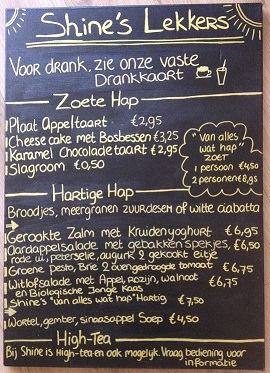 Shine's Lekkers
Voor drank, zie onze vaste
Drankkaart
Zoete Hap
1 Plaat Appeltaart €2,95
1 Cheese cake met Bosbessen €3,25
1 Karamel Chocolade taart €2,95
1 Slagroom €0,50
"Van alles
wat hap"
ZOET
1 persoon €4,50
2 personen €8,95
Hartige Hap
Broodjes, meergranen zuurdesem of witte ciabatta
Gerookte Zalm met Kruidenyoghurt €6,95
Aardappelsalade met gebakken spekjes, €6,50
rode ui, peterselie, augurk & gekookt eitje
Groene pesto, Brie & ovengedroogde tomaat €6,75
Witlofsalade met Appel, rozijn, walnoot €6,75
en Biologische Jonge Kaas
Shine's "van alles wat hap" Hartig €7,50
Wortel, gember, sinaasappel Soep €4,50
High-Tea
Bij Shine is High-tea en ook mogelijk. Vraag bediening voor
informatie